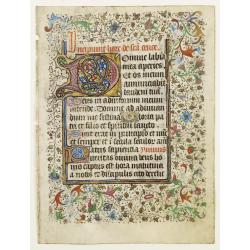 Incipiunt hore de sca cruce
Domine labia
mea aperies
Et os meum
annunciabit
laudem tuā
Deus in adiutorium meum
intende Domine ad adiuuan
dum me festina Gloria pa
tri et filio et spiritui sancto
et nunc et
semper et in secula seculor
Patris sapientia
veritas diuina deus ho
mo captus est hora matutina
a notis discipulis cito